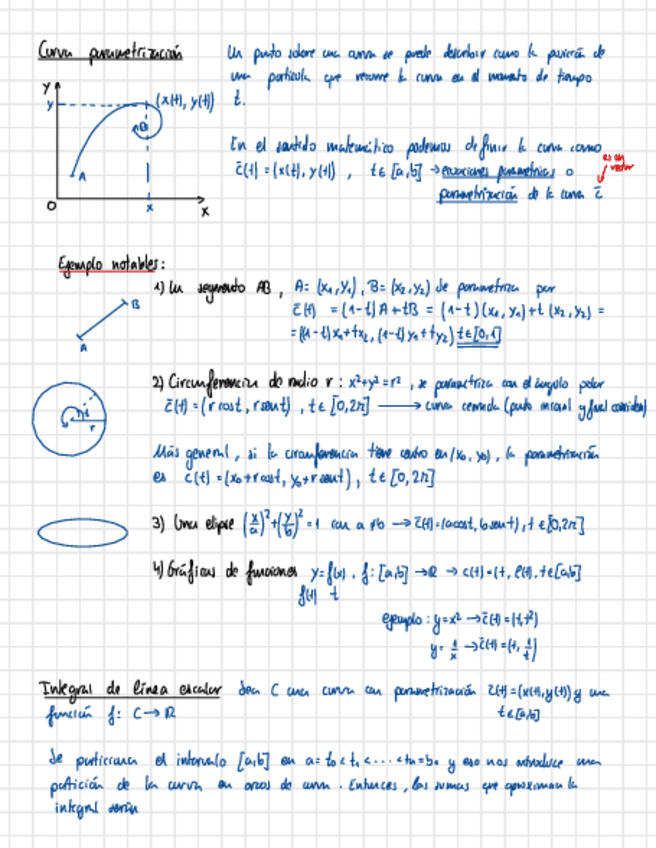 Curva parametrización
Un punto sobre una curva se puede describir como la posición de
una partícula que recorre la curva en el momento de tiempo
t.
y
y
(x(t), y(t))
B
A
O
x
x
En el sentido matemático podemos definir la curva como
c̄(t) = (x(t), y(t)), t ∈ [a,b] → ecuaciones parametricas o
es un vector
parametrización de la curva c̄
Ejemplo notables:
1) Un segmento AB, A = (x₁, y₁), B = (x₂, y₂) se parametriza por
c̄(t) = (1-t) A + tB = (1-t)(x₁, y₁) + t (x₂, y₂) =
= ((1-t)x₁ + tx₂, (1-t) y₁ + ty₂) t ∈ [0,1]
B
A
2) Circunferencia de radio r : x²+y² = r², se parametriza con el ángulo polar
c̄(t) = (r cost, r sent), t ∈ [0,2π] → curva cerrada (punto inicial y final coinciden)
t
r
Más general, si la circunferencia tiene centro en (x₀, y₀), la parametrización
es c(t) = (x₀ + r cost, y₀ + r sent), t ∈ [0, 2π]
3) Una elipse (x/a)² + (y/b)² = 1 con a → c̄(t) = (a cost, b sent), t ∈ [0,2π]
4) Gráficas de funciones y = f(x), f: [a,b] → ℝ → c(t) = (t, f(t), t ∈ [a,b]
f(t) t
ejemplo : y = x² → c̄(t) = (t, t²)
y = 1/x → c̄(t) = (t, 1/t)
Integral de línea escalar Sea C una curva con parametrización c̄(t) = (x(t), y(t)) y una
función f: C → ℝ t ∈ [a,b]
Se particiona el intervalo [a,b] en a = t₀ < t₁ < ... < tₙ = b. y eso nos introduce una
partición de la curva en arcos de curva. Entonces, las sumas que aproximan la
integral serán